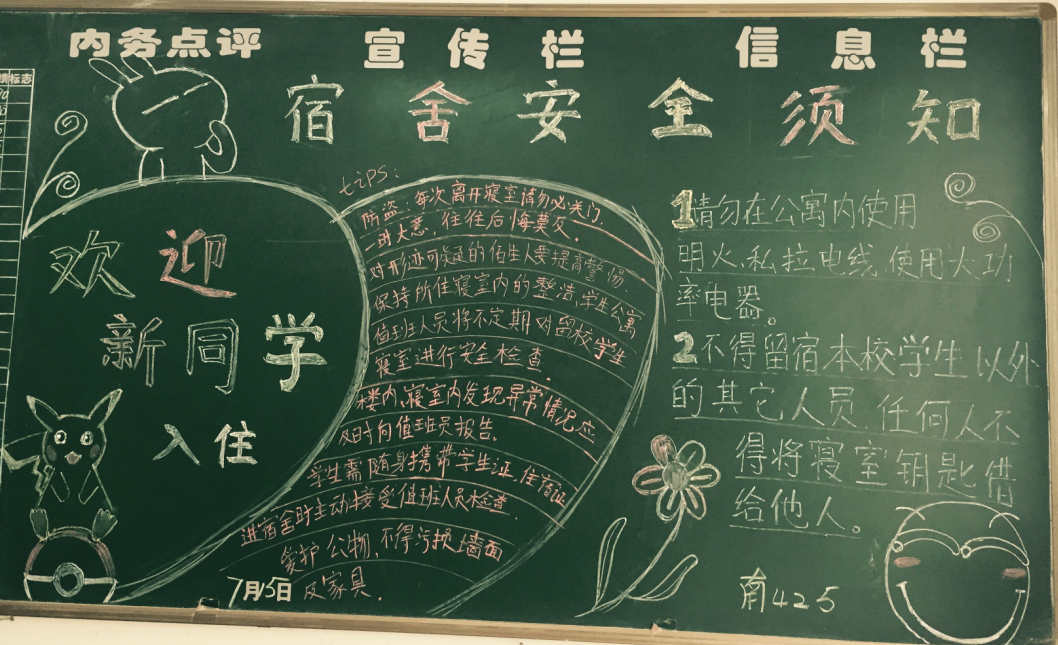 内务点评 宣传栏 信息栏
标志
宿舍安全须知
欢迎
新同学
入住
tips:
防盗:每次离开寝室请勿必关门,
一时大意,往往后悔莫及。
对形迹可疑的陌生人要提高警惕,
保持所住寝室内的整洁,学生公寓
值班人员将不定期对留校学生
寝室进行安全检查。
楼内、寝室内发现异常情况应
及时向值班员报告。
学生需随身携带学生证、住宿证
进宿舍时主动接受值班人员检查。
爱护公物,不得污损墙面
及家具。
7月15日
1请勿在公寓内使用
明火、私拉电线、使用大功
率电器。
2不得留宿本校学生以外
的其它人员,任何人不
得将寝室钥匙借
给他人。
南425